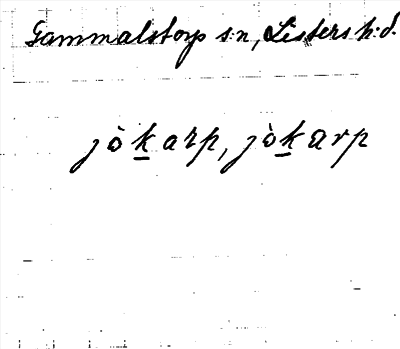 Gammalstorp s:n, Listers h:d.
jòk̲arp, jòk̲arp